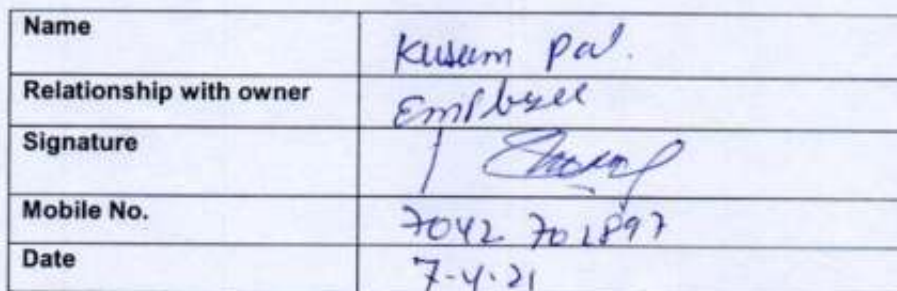 Name Kusum Pal.
Relationship with owner Employee
Signature
Mobile No. 7042 701897
Date 7-4-21